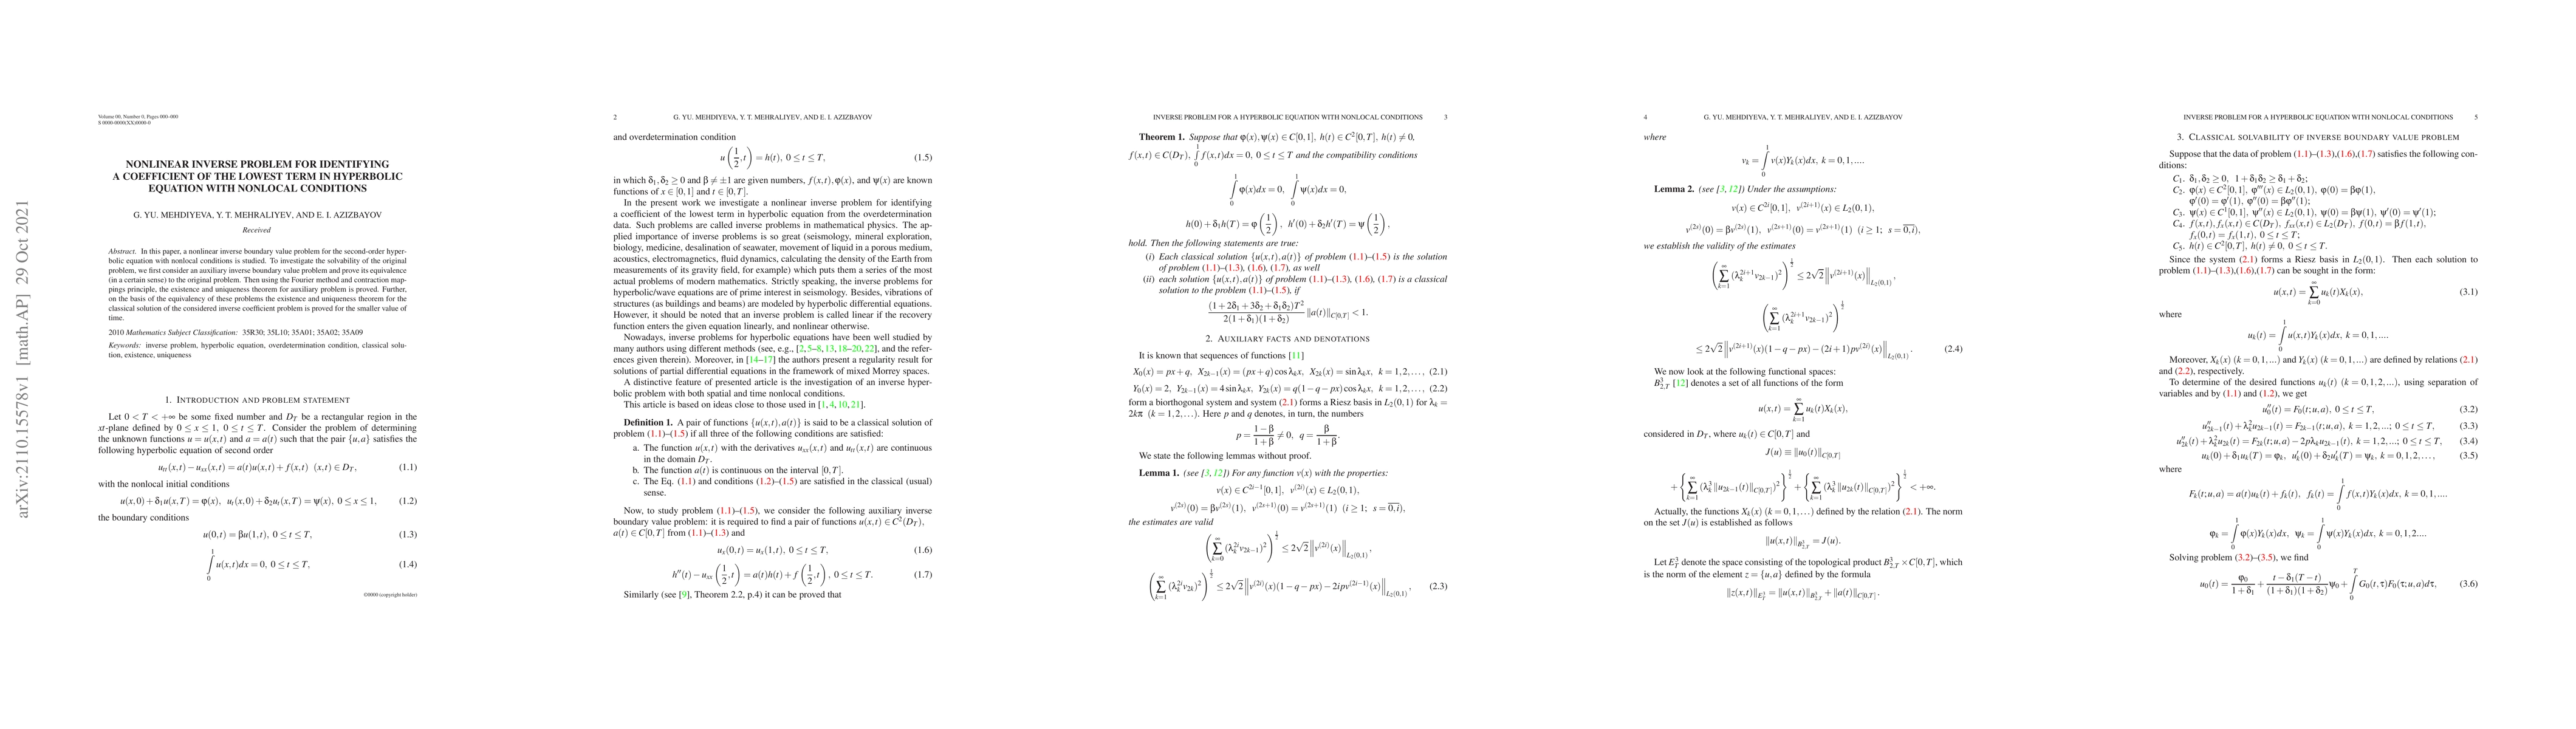 arXiv:2110.15578v1 [math.AP] 29 Oct 2021
Volume 00, Number 0, Pages 000–000
S 0000-0000(XX)0000-0
NONLINEAR INVERSE PROBLEM FOR IDENTIFYING
A COEFFICIENT OF THE LOWEST TERM IN HYPERBOLIC
EQUATION WITH NONLOCAL CONDITIONS
G. YU. MEHDIYEVA, Y. T. MEHRALIYEV, AND E. I. AZIZBAYOV
Received
Abstract. In this paper, a nonlinear inverse boundary value problem for the second-order hyper-
bolic equation with nonlocal conditions is studied. To investigate the solvability of the original
problem, we first consider an auxiliary inverse boundary value problem and prove its equivalence
(in a certain sense) to the original problem. Then using the Fourier method and contraction map-
pings principle, the existence and uniqueness theorem for auxiliary problem is proved. Further,
on the basis of the equivalency of these problems the existence and uniqueness theorem for the
classical solution of the considered inverse coefficient problem is proved for the smaller value of
time.
2010 Mathematics Subject Classification: 35R30; 35L10; 35A01; 35A02; 35A09
Keywords: inverse problem, hyperbolic equation, overdetermination condition, classical solu-
tion, existence, uniqueness
1. INTRODUCTION AND PROBLEM STATEMENT
Let 0 < T < +∞ be some fixed number and D_T be a rectangular region in the
xt-plane defined by 0 ≤ x ≤ 1, 0 ≤ t ≤ T. Consider the problem of determining
the unknown functions u = u(x,t) and a = a(t) such that the pair {u,a} satisfies the
following hyperbolic equation of second order
u_tt(x,t) − u_xx(x,t) = a(t)u(x,t) + f(x,t) (x,t) ∈ D_T, (1.1)
with the nonlocal initial conditions
u(x,0) + δ₁u(x,T) = φ(x), u_t(x,0) + δ₂u_t(x,T) = ψ(x), 0 ≤ x ≤ 1, (1.2)
the boundary conditions
u(0,t) = βu(1,t), 0 ≤ t ≤ T, (1.3)
∫₀¹ u(x,t)dx = 0, 0 ≤ t ≤ T, (1.4)
©0000 (copyright holder)
2 G. YU. MEHDIYEVA, Y. T. MEHRALIYEV, AND E. I. AZIZBAYOV
and overdetermination condition
u(1/2, t) = h(t), 0 ≤ t ≤ T, (1.5)
in which δ₁,δ₂ ≥ 0 and β ≠ ±1 are given numbers, f(x,t), φ(x), and ψ(x) are known
functions of x ∈ [0,1] and t ∈ [0,T].
In the present work we investigate a nonlinear inverse problem for identifying
a coefficient of the lowest term in hyperbolic equation from the overdetermination
data. Such problems are called inverse problems in mathematical physics. The ap-
plied importance of inverse problems is so great (seismology, mineral exploration,
biology, medicine, desalination of seawater, movement of liquid in a porous medium,
acoustics, electromagnetics, fluid dynamics, calculating the density of the Earth from
measurements of its gravity field, for example) which puts them a series of the most
actual problems of modern mathematics. Strictly speaking, the inverse problems for
hyperbolic/wave equations are of prime interest in seismology. Besides, vibrations of
structures (as buildings and beams) are modeled by hyperbolic differential equations.
However, it should be noted that an inverse problem is called linear if the recovery
function enters the given equation linearly, and nonlinear otherwise.
Nowadays, inverse problems for hyperbolic equations have been well studied by
many authors using different methods (see, e.g., [2, 5–8, 13, 18–20, 22], and the refer-
ences given therein). Moreover, in [14–17] the authors present a regularity result for
solutions of partial differential equations in the framework of mixed Morrey spaces.
A distinctive feature of presented article is the investigation of an inverse hyper-
bolic problem with both spatial and time nonlocal conditions.
This article is based on ideas close to those used in [1, 4, 10, 21].
Definition 1. A pair of functions {u(x,t),a(t)} is said to be a classical solution of
problem (1.1)–(1.5) if all three of the following conditions are satisfied:
a. The function u(x,t) with the derivatives u_xx(x,t) and u_tt(x,t) are continuous
in the domain D_T.
b. The function a(t) is continuous on the interval [0,T].
c. The Eq. (1.1) and conditions (1.2)–(1.5) are satisfied in the classical (usual)
sense.
Now, to study problem (1.1)–(1.5), we consider the following auxiliary inverse
boundary value problem: it is required to find a pair of functions u(x,t) ∈ C²(D_T),
a(t) ∈ C[0,T] from (1.1)–(1.3) and
u_x(0,t) = u_x(1,t), 0 ≤ t ≤ T, (1.6)
h″(t) − u_xx(1/2, t) = a(t)h(t) + f(1/2, t), 0 ≤ t ≤ T. (1.7)
Similarly (see [9], Theorem 2.2, p.4) it can be proved that
INVERSE PROBLEM FOR A HYPERBOLIC EQUATION WITH NONLOCAL CONDITIONS 3
Theorem 1. Suppose that φ(x),ψ(x) ∈ C[0,1], h(t) ∈ C²[0,T], h(t) ≠ 0,
f(x,t) ∈ C(D_T), ∫₀¹ f(x,t)dx = 0, 0 ≤ t ≤ T and the compatibility conditions
∫₀¹ φ(x)dx = 0, ∫₀¹ ψ(x)dx = 0,
h(0) + δ₁h(T) = φ(1/2), h′(0) + δ₂h′(T) = ψ(1/2),
hold. Then the following statements are true:
(i) Each classical solution {u(x,t),a(t)} of problem (1.1)–(1.5) is the solution
of problem (1.1)–(1.3), (1.6), (1.7), as well
(ii) each solution {u(x,t),a(t)} of problem (1.1)–(1.3), (1.6), (1.7) is a classical
solution to the problem (1.1)–(1.5), if
(1+2δ₁+3δ₂+δ₁δ₂)T² / 2(1+δ₁)(1+δ₂) ‖a(t)‖_C[0,T] < 1.
2. AUXILIARY FACTS AND DENOTATIONS
It is known that sequences of functions [11]
X₀(x) = px+q, X_2k−1(x) = (px+q)cosλ_k x, X_2k(x) = sinλ_k x, k = 1,2,..., (2.1)
Y₀(x) = 2, Y_2k−1(x) = 4sinλ_k x, Y_2k(x) = q(1−q−px)cosλ_k x, k = 1,2,..., (2.2)
form a biorthogonal system and system (2.1) forms a Riesz basis in L₂(0,1) for λ_k =
2kπ (k = 1,2,...). Here p and q denotes, in turn, the numbers
p = (1−β)/(1+β) ≠ 0, q = β/(1+β).
We state the following lemmas without proof.
Lemma 1. (see [3, 12]) For any function v(x) with the properties:
v(x) ∈ C^{2i−1}[0,1], v^{(2i)}(x) ∈ L₂(0,1),
v^{(2s)}(0) = βv^{(2s)}(1), v^{(2s+1)}(0) = v^{(2s+1)}(1) (i ≥ 1; s = 0,i),
the estimates are valid
(∑_{k=0}^∞ (λ_k^{2i} v_{2k−1})²)^{1/2} ≤ 2√2 ‖v^{(2i)}(x)‖_{L₂(0,1)},
(∑_{k=1}^∞ (λ_k^{2i} v_{2k})²)^{1/2} ≤ 2√2 ‖v^{(2i)}(x)(1−q−px) − 2ipv^{(2i−1)}(x)‖_{L₂(0,1)}, (2.3)
4 G. YU. MEHDIYEVA, Y. T. MEHRALIYEV, AND E. I. AZIZBAYOV
where
v_k = ∫₀¹ v(x)Y_k(x)dx, k = 0,1,....
Lemma 2. (see [3, 12]) Under the assumptions:
v(x) ∈ C^{2i}[0,1], v^{(2i+1)}(x) ∈ L₂(0,1),
v^{(2s)}(0) = βv^{(2s)}(1), v^{(2s+1)}(0) = v^{(2s+1)}(1) (i ≥ 1; s = 0,i),
we establish the validity of the estimates
(∑_{k=1}^∞ (λ_k^{2i+1} v_{2k−1})²)^{1/2} ≤ 2√2 ‖v^{(2i+1)}(x)‖_{L₂(0,1)},
(∑_{k=1}^∞ (λ_k^{2i+1} v_{2k−1})²)^{1/2}
≤ 2√2 ‖v^{(2i+1)}(x)(1−q−px) − (2i+1)pv^{(2i)}(x)‖_{L₂(0,1)}. (2.4)
We now look at the following functional spaces:
B³_{2,T} [12] denotes a set of all functions of the form
u(x,t) = ∑_{k=1}^∞ u_k(t)X_k(x),
considered in D_T, where u_k(t) ∈ C[0,T] and
J(u) ≡ ‖u₀(t)‖_{C[0,T]}
+ {∑_{k=1}^∞ (λ_k³ ‖u_{2k−1}(t)‖_{C[0,T]})²}^{1/2} + {∑_{k=1}^∞ (λ_k³ ‖u_{2k}(t)‖_{C[0,T]})²}^{1/2} < +∞.
Actually, the functions X_k(x) (k = 0,1,...) defined by the relation (2.1). The norm
on the set J(u) is established as follows
‖u(x,t)‖_{B³_{2,T}} = J(u).
Let E³_T denote the space consisting of the topological product B³_{2,T} × C[0,T], which
is the norm of the element z = {u,a} defined by the formula
‖z(x,t)‖_{E³_T} = ‖u(x,t)‖_{B³_{2,T}} + ‖a(t)‖_{C[0,T]}.
INVERSE PROBLEM FOR A HYPERBOLIC EQUATION WITH NONLOCAL CONDITIONS 5
3. CLASSICAL SOLVABILITY OF INVERSE BOUNDARY VALUE PROBLEM
Suppose that the data of problem (1.1)–(1.3),(1.6),(1.7) satisfies the following con-
ditions:
C₁. δ₁,δ₂ ≥ 0, 1+δ₁δ₂ ≥ δ₁+δ₂;
C₂. φ(x) ∈ C²[0,1], φ‴(x) ∈ L₂(0,1), φ(0) = βφ(1),
φ′(0) = φ′(1), φ″(0) = βφ″(1);
C₃. ψ(x) ∈ C¹[0,1], ψ″(x) ∈ L₂(0,1), ψ(0) = βψ(1), ψ′(0) = ψ′(1);
C₄. f(x,t), f_x(x,t) ∈ C(D_T), f_xx(x,t) ∈ L₂(D_T), f(0,t) = βf(1,t),
f_x(0,t) = f_x(1,t), 0 ≤ t ≤ T;
C₅. h(t) ∈ C²[0,T], h(t) ≠ 0, 0 ≤ t ≤ T.
Since the system (2.1) forms a Riesz basis in L₂(0,1). Then each solution to
problem (1.1)–(1.3),(1.6),(1.7) can be sought in the form:
u(x,t) = ∑_{k=0}^∞ u_k(t)X_k(x), (3.1)
where
u_k(t) = ∫₀¹ u(x,t)Y_k(x)dx, k = 0,1,....
Moreover, X_k(x) (k = 0,1,...) and Y_k(x) (k = 0,1,...) are defined by relations (2.1)
and (2.2), respectively.
To determine of the desired functions u_k(t) (k = 0,1,2,...), using separation of
variables and by (1.1) and (1.2), we get
u₀″(t) = F₀(t;u,a), 0 ≤ t ≤ T, (3.2)
u″_{2k−1}(t) + λ_k² u_{2k−1}(t) = F_{2k−1}(t;u,a), k = 1,2,...; 0 ≤ t ≤ T, (3.3)
u″_{2k}(t) + λ_k² u_{2k}(t) = F_{2k}(t;u,a) − 2pλ_k u_{2k−1}(t), k = 1,2,...; 0 ≤ t ≤ T, (3.4)
u_k(0) + δ₁u_k(T) = φ_k, u′_k(0) + δ₂u′_k(T) = ψ_k, k = 0,1,2,..., (3.5)
where
F_k(t;u,a) = a(t)u_k(t) + f_k(t), f_k(t) = ∫₀¹ f(x,t)Y_k(x)dx, k = 0,1,....
φ_k = ∫₀¹ φ(x)Y_k(x)dx, ψ_k = ∫₀¹ ψ(x)Y_k(x)dx, k = 0,1,2....
Solving problem (3.2)–(3.5), we find
u₀(t) = φ₀/(1+δ₁) + (t−δ₁(T−t))/((1+δ₁)(1+δ₂)) ψ₀ + ∫₀^T G₀(t,τ)F₀(τ;u,a)dτ, (3.6)